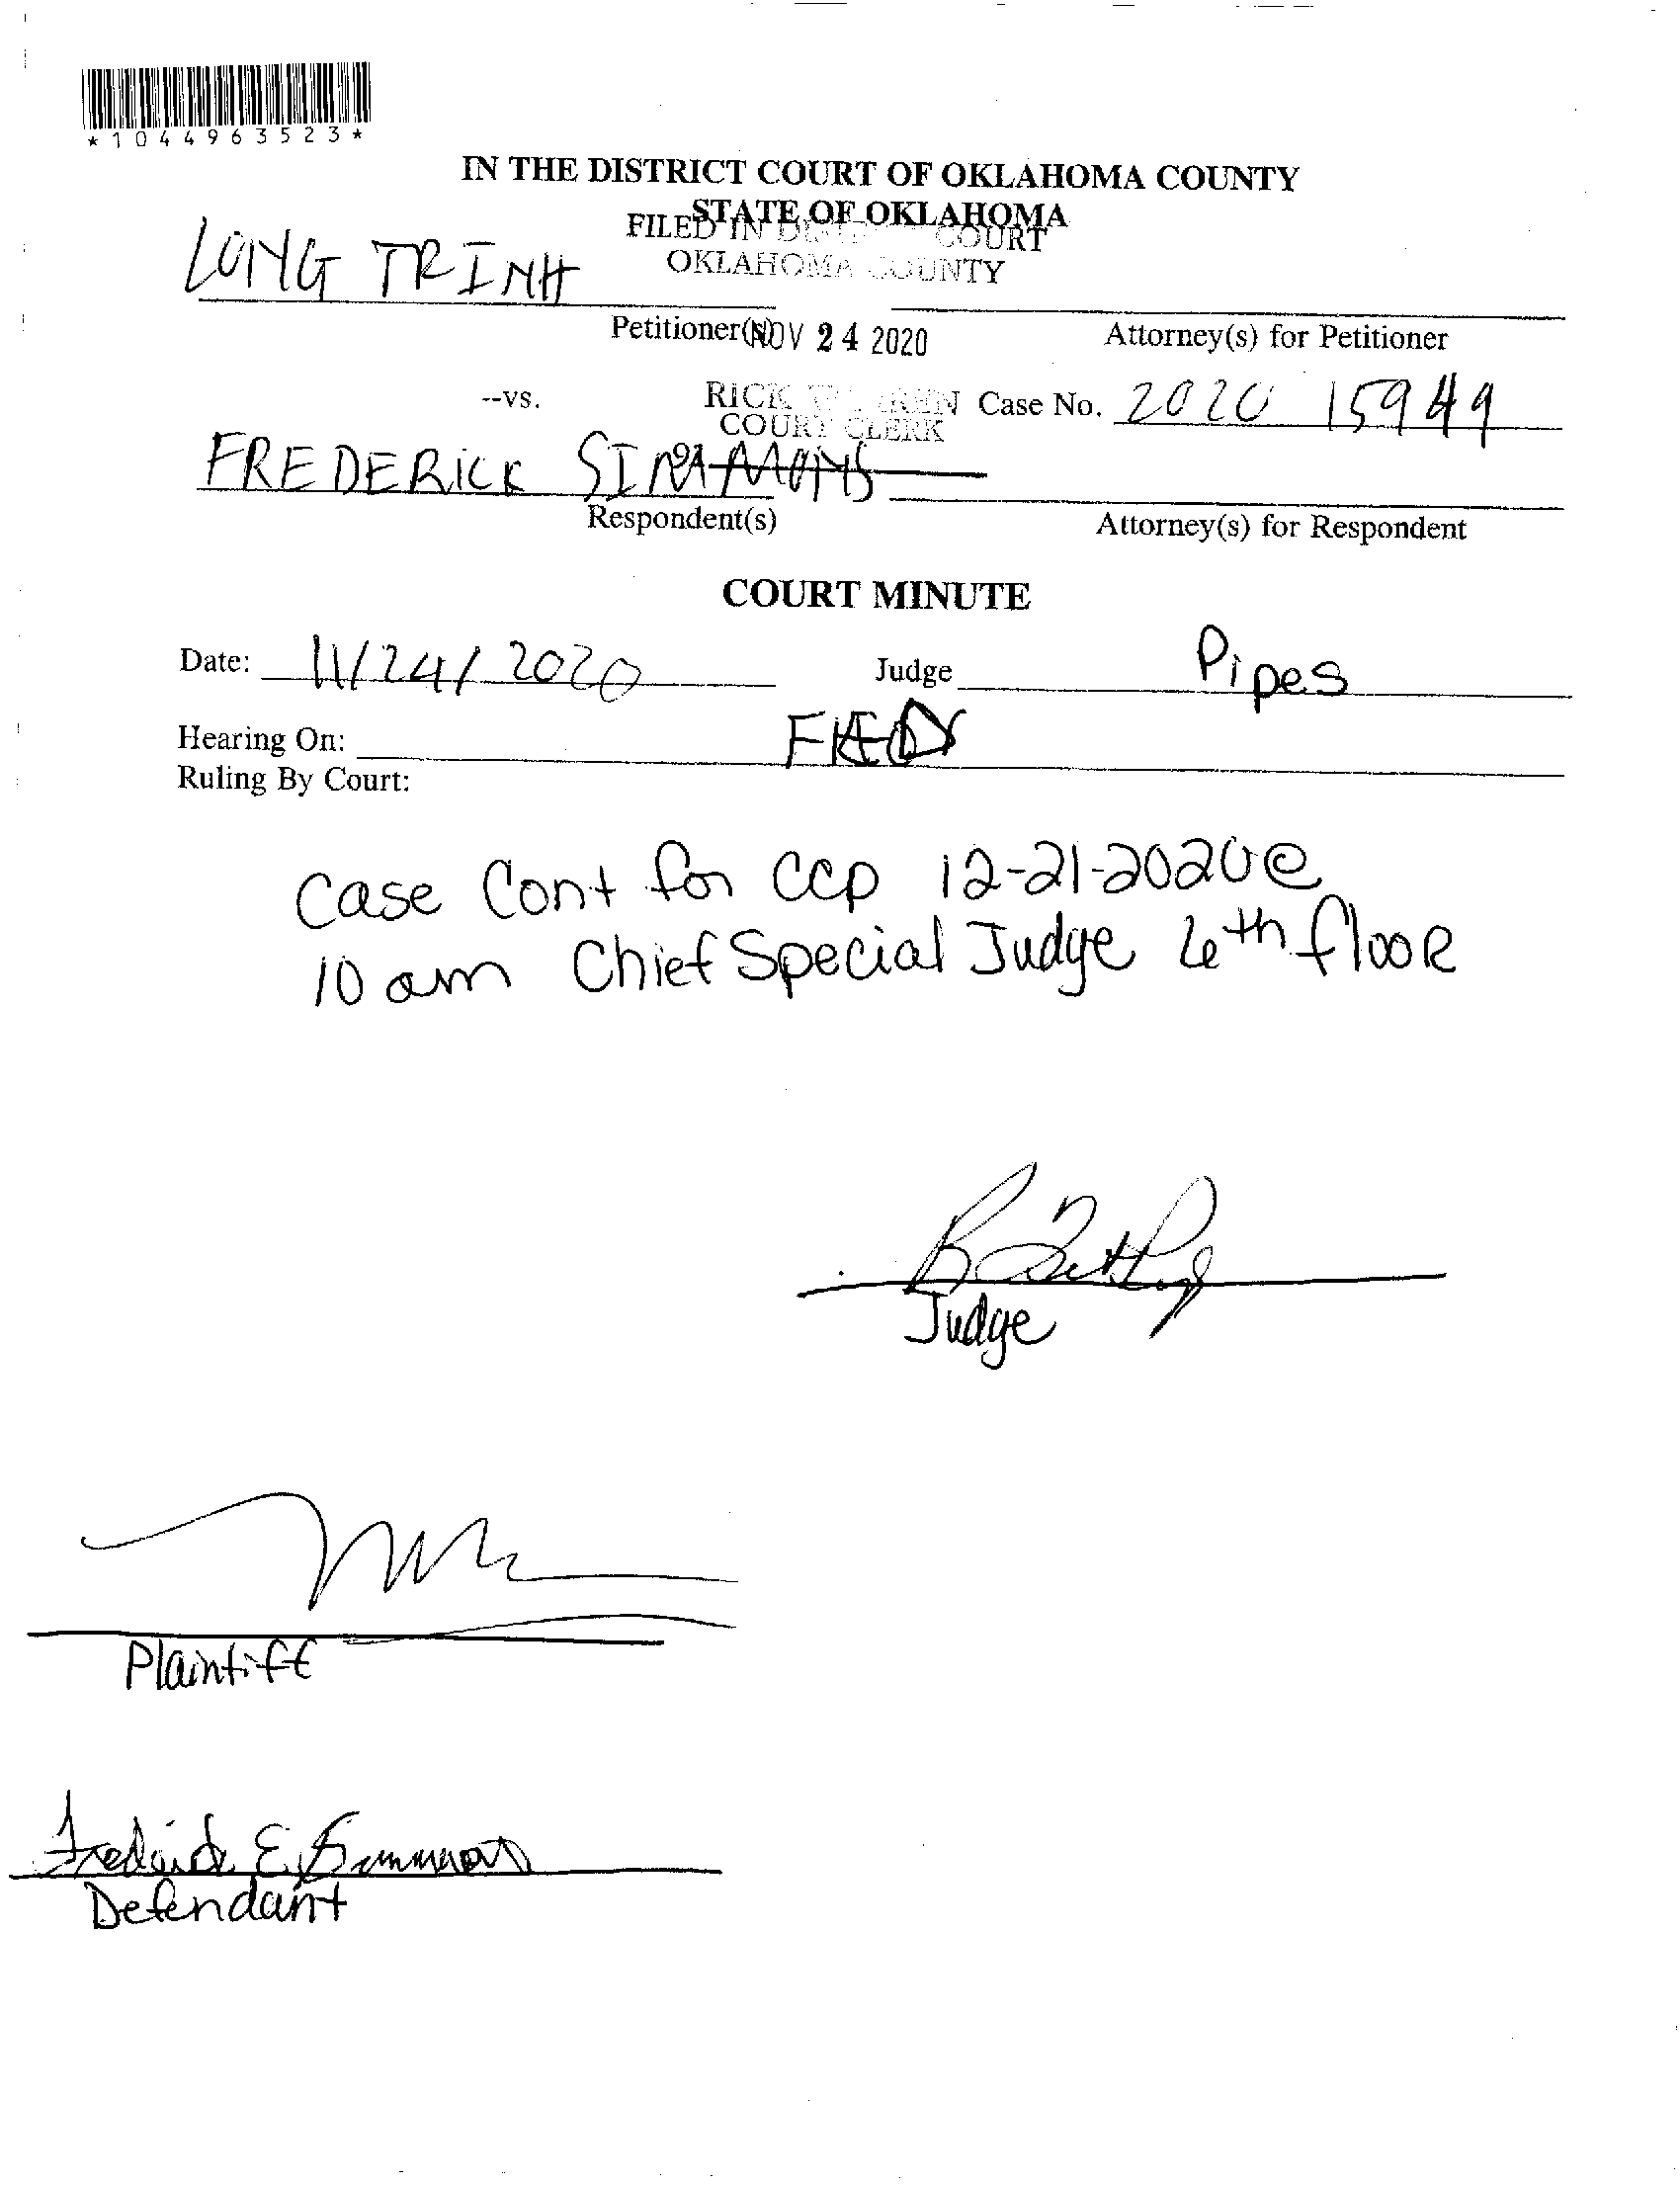 *1044963523*
IN THE DISTRICT COURT OF OKLAHOMA COUNTY
STATE OF OKLAHOMA
FILED IN DISTRICT COURT
OKLAHOMA COUNTY
LONG TRINH
Petitioner(s)
NOV 24 2020
Attorney(s) for Petitioner
--vs.
RICK WARREN
COURT CLERK
Case No. 2020 15949
FREDERICK SIMMONS
Respondent(s)
Attorney(s) for Respondent
COURT MINUTE
Date: 11/24/2020
Judge Pipes
Hearing On:
Ruling By Court:
Case Cont for CCP 12-21-2020 @
10 am Chief Special Judge 6th floor
Judge
Plaintiff
Frederick E. Simmons
Defendant